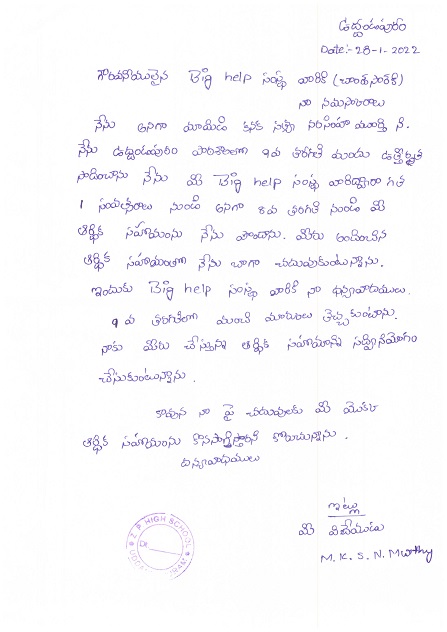 ఉద్దండపురం
Date:- 28-1-2022
గౌరవనీయులైన Big help సంస్థ వారికి
నా నమస్కారాలు
నేను అనగా మామిడి కనక సత్యా నరసింహ మూర్తి ని.
నేను ఉద్దండపురం పాఠశాలలో 9వ తరగతి మందు ఉత్తీర్ణత
సాదించాను నేను మీ Big help సంస్థ వారిద్వారా గత
1 సంవత్సరాలు నుండి అనగా 8వ తరగతి నుండి మీ
ఆర్థిక సహాయంను నేను పొందాను. మీరు అందించిన
ఆర్థిక సహాయంతో నేను బాగా చదువుకుంటున్నాను.
ఇందుకు Big help సంస్థ వారికి నా ధన్యవాదములు.
9 వ తరగతిలో మంచి మార్కులు తెచ్చుకుంటాను.
నాకు మీరు చేస్తున్న ఆర్థిక సహాయాన్ని సద్వినియోగం
చేసుకుంటున్నాను.
కావున నా పై చదువులకు మీ యొక్క
ఆర్థిక సహాయంను కొనసాగిస్తారని కోరుచున్నాను.
ధన్యావాదములు
ఇట్లు
మీ విదేయుడు
M.K.S.N.Murthy
Z.P. HIGH SCHOOL